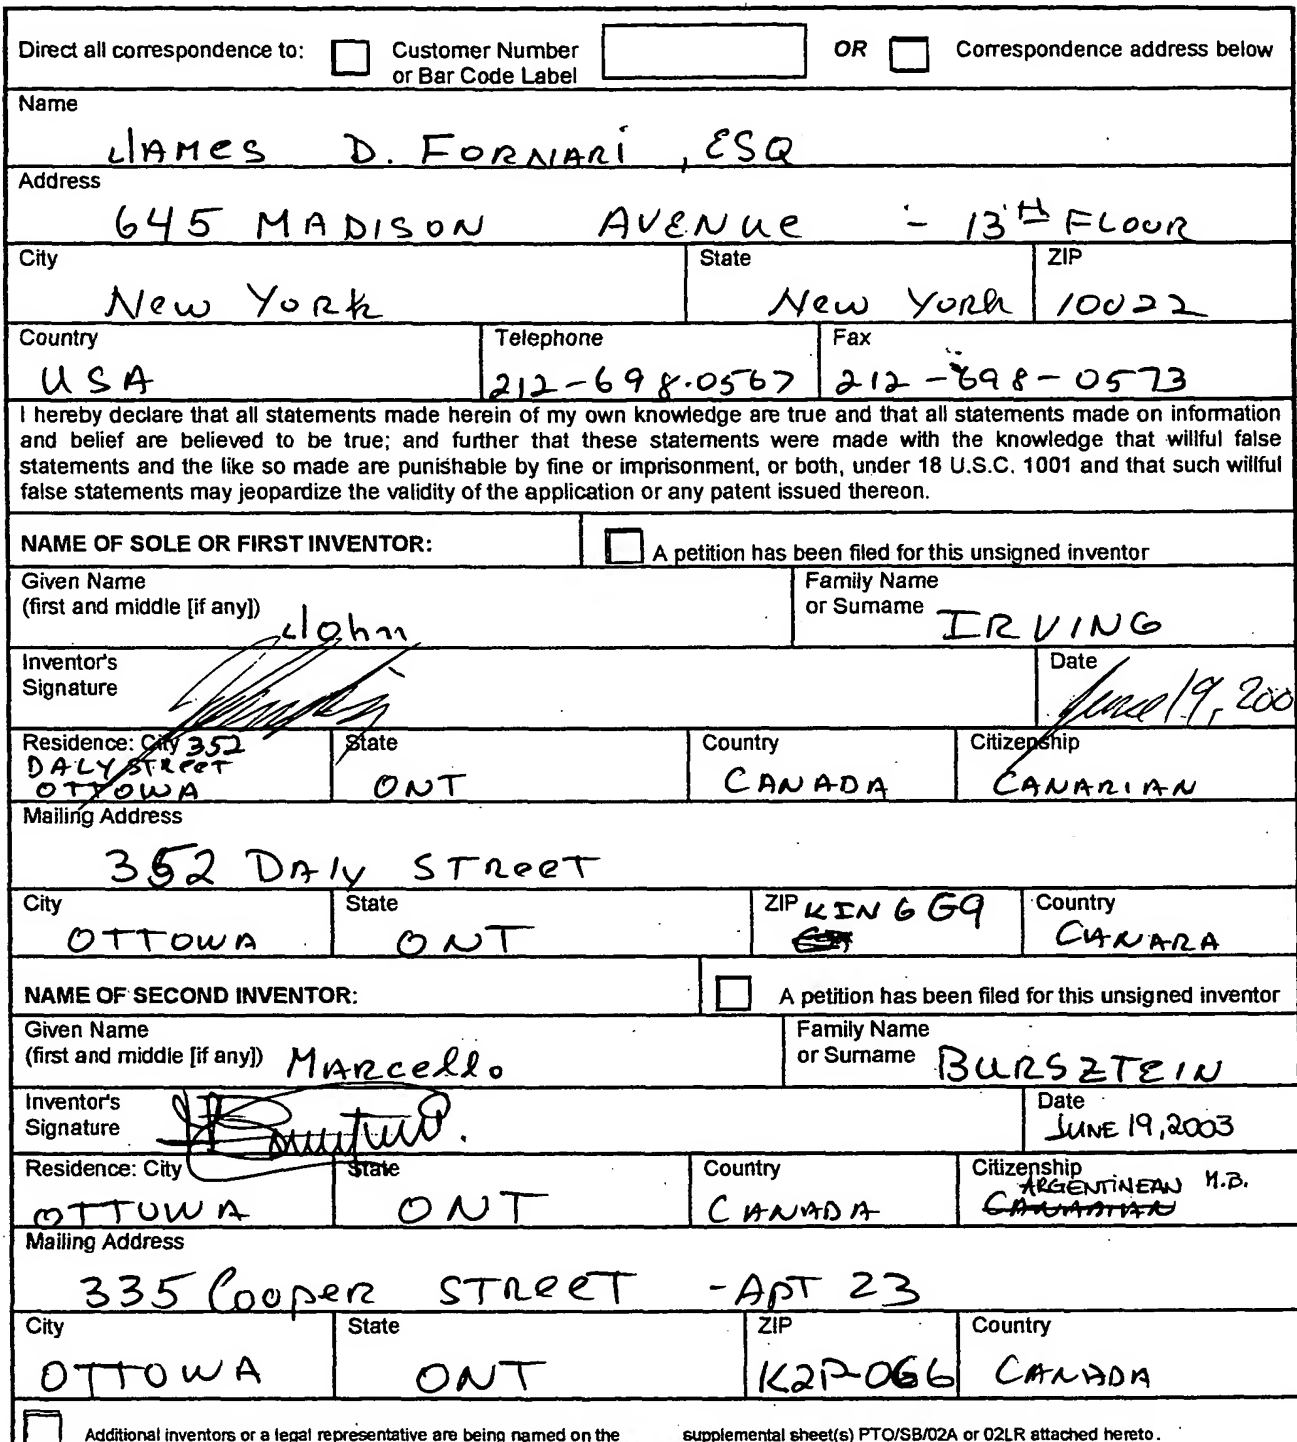 Direct all correspondence to: Customer Number or Bar Code Label OR Correspondence address below
Name
JAMES D. FORNARI, ESQ
Address
645 MADISON AVENUE - 13TH FLOOR
City State ZIP
New York New York 10022
Country Telephone Fax
USA 212-698-0567 212-698-0573
I hereby declare that all statements made herein of my own knowledge are true and that all statements made on information
and belief are believed to be true; and further that these statements were made with the knowledge that willful false
statements and the like so made are punishable by fine or imprisonment, or both, under 18 U.S.C. 1001 and that such willful
false statements may jeopardize the validity of the application or any patent issued thereon.
NAME OF SOLE OR FIRST INVENTOR: A petition has been filed for this unsigned inventor
Given Name Family Name
(first and middle [if any]) John or Surname IRVING
Inventor's Date
Signature June 19, 200
Residence: City 352 State Country Citizenship
DALY STREET
OTTOWA ONT CANADA CANARIAN
Mailing Address
352 DAly STREET
City State ZIP KIN 6G9 Country
OTTOWA ONT CANARA
NAME OF SECOND INVENTOR: A petition has been filed for this unsigned inventor
Given Name Family Name
(first and middle [if any]) MARcello or Surname BURSZTEIN
Inventor's Date
Signature JUNE 19, 2003
Residence: City State Country Citizenship
ARGENTINEAN M.B.
OTTUWA ONT CANADA
Mailing Address
335 Cooper STREET - APT 23
City State ZIP Country
OTTOWA ONT K2P-0G6 CANADA
Additional inventors or a legal representative are being named on the supplemental sheet(s) PTO/SB/02A or 02LR attached hereto.